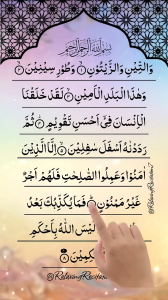 بسم الله الرحمن الرحيم
وَالتِّيْنِ وَالزَّيْتُوْنِ ۙ وَطُوْرِ سِيْنِيْنَ ۙ
وَهٰذَا الْبَلَدِ الْاَمِيْنِ ۙ لَقَدْ خَلَقْنَا
الْاِنْسَانَ فِيْۤ اَحْسَنِ تَقْوِيْمٍ ۫ ثُمَّ
رَدَدْنٰهُ اَسْفَلَ سٰفِلِيْنَ ۙ اِلَّا الَّذِيْنَ
اٰمَنُوْا وَعَمِلُوا الصّٰلِحٰتِ فَلَهُمْ اَجْرٌ
غَيْرُ مَمْنُوْنٍ ؕ فَمَا يُكَذِّبُكَ بَعْدُ
لَيْسَ اللّٰهُ بِاَحْكَمِ
كِمِيْنَ
@RelaxingRecitation7